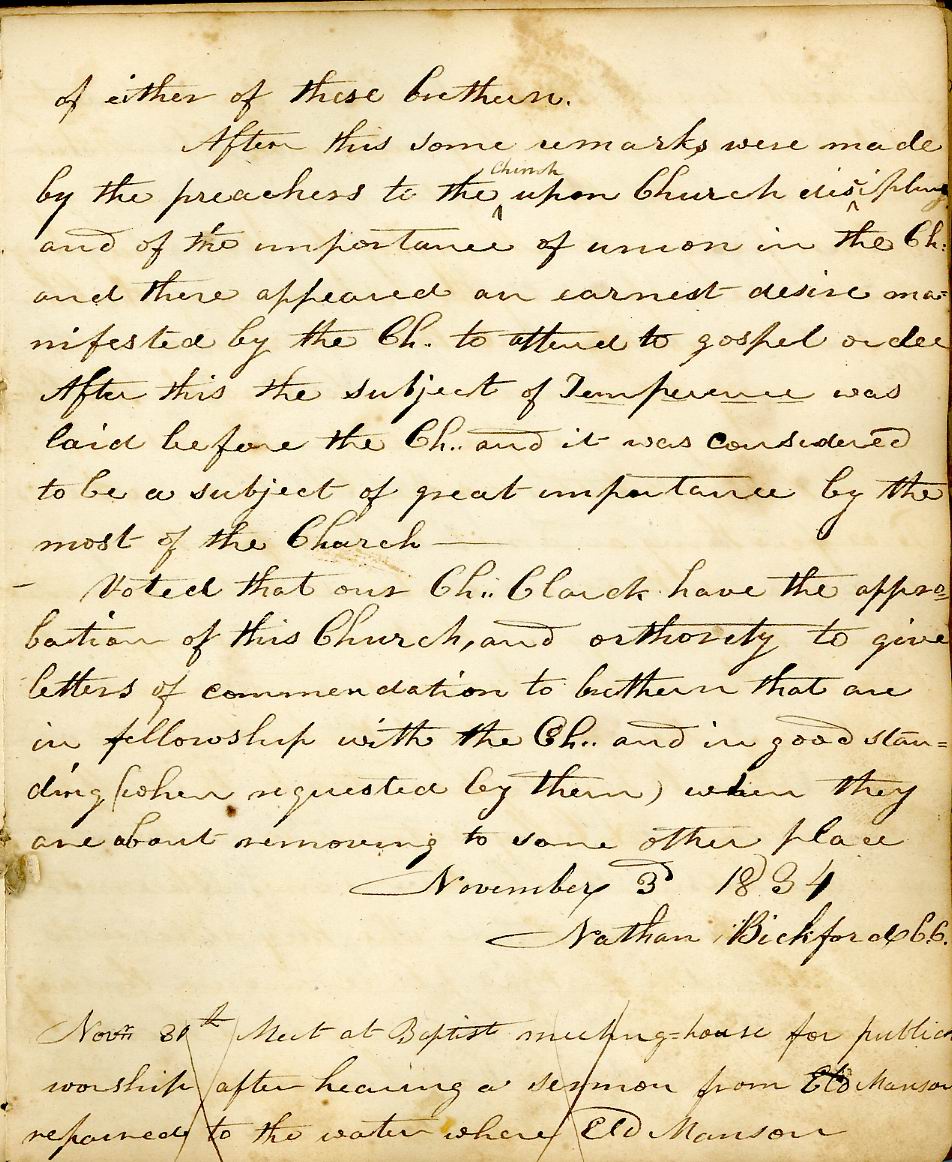 of either of these brethern.
After this some remarks were made
by the preachers to the Church upon Church disipline
and of the importance of union in the Ch.
and there appeared an earnest desire ma-
nifested by the Ch. to attend to gospel order
After this the subject of Temperence was
laid before the Ch.. and it was considered
to be a subject of great importance by the
most of the Church —
- Voted that our Ch.. Clarck have the appro=
bation of this Church, and orthority to give
letters of commendation to brethern that are
in fellowship with the Ch.. and in good stan=
ding (when requested by them) when they
are about removing to some other place
November 3d 1834
Nathan Bickford C.C.
Novr 30th Meet at Baptist meeting=house for public
worship after hearing a sermon from Eld Manson
repaired to the water where Eld Manson